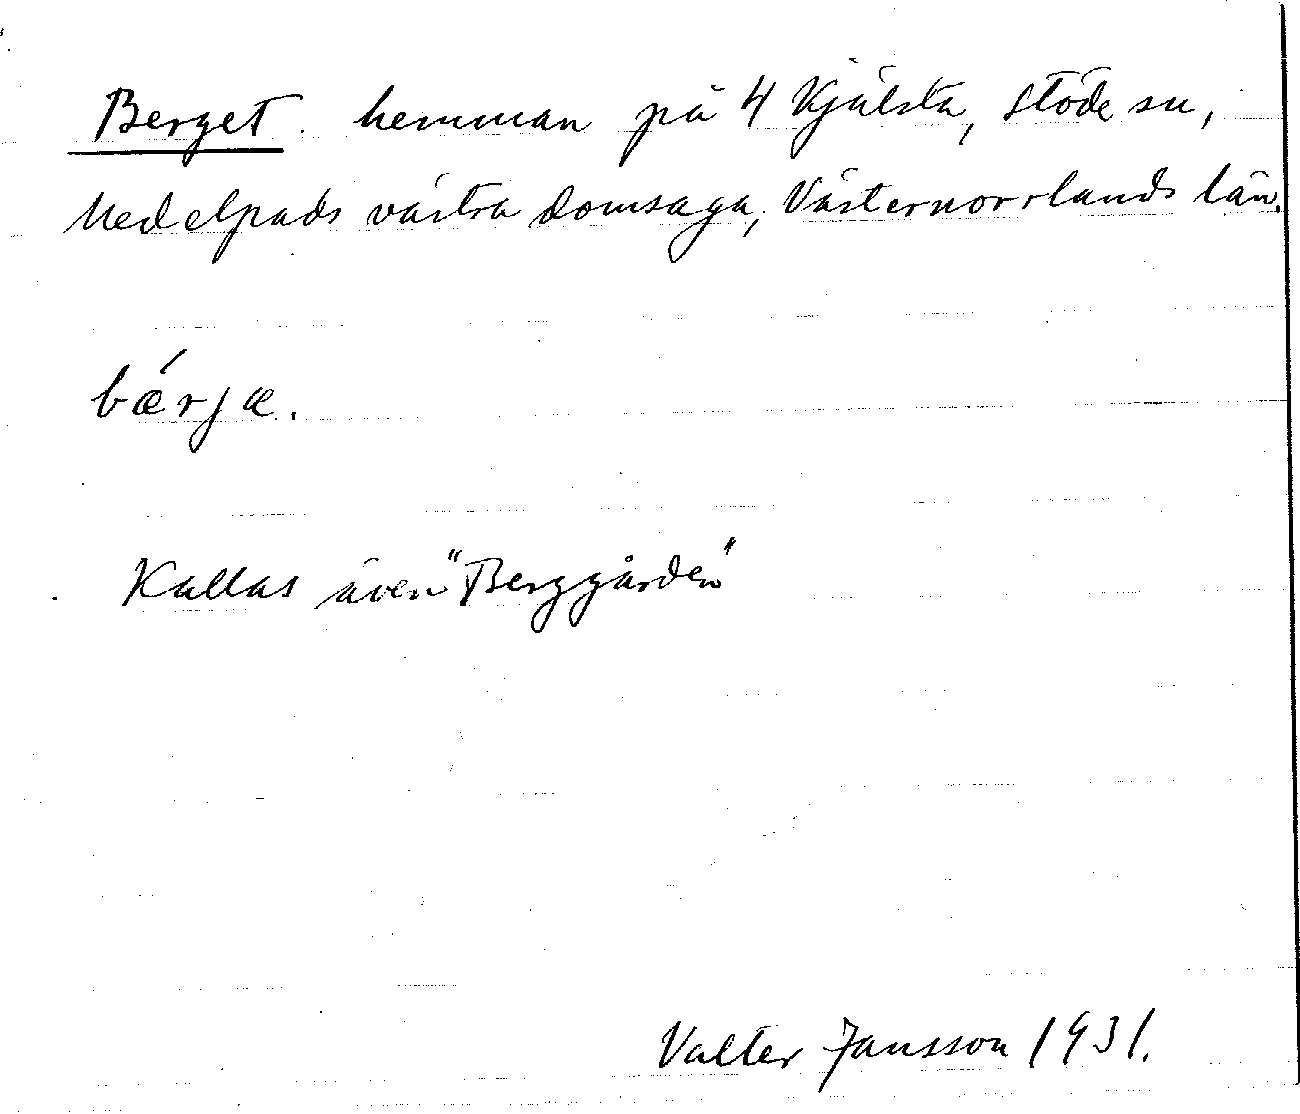 Berget. hemman på 4 Kjälsta, Stöde sn,
Medelpads västra domsaga, Västernorrlands län.
bǽrjæ.
Kallas även "Berggården"
Valter Jansson 1931.